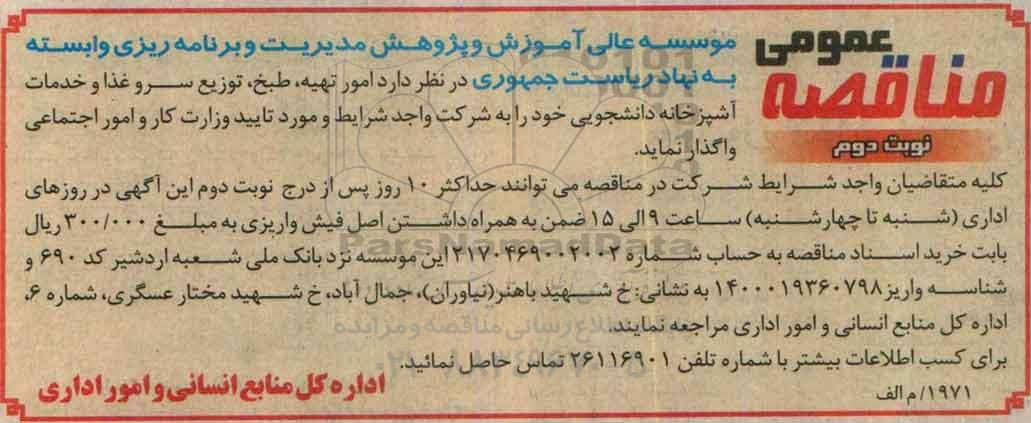 مناقصه عمومی
نوبت دوم
موسسه عالی آموزش و پژوهش مدیریت و برنامه ریزی وابسته
به نهاد ریاست جمهوری در نظر دارد امور تهیه، طبخ، توزیع سرو غذا و خدمات
آشپزخانه دانشجویی خود را به شرکت واجد شرایط و مورد تایید وزارت کار و امور اجتماعی
واگذار نماید.
کلیه متقاضیان واجد شرایط شرکت در مناقصه می توانند حداکثر ۱۰ روز پس از درج نوبت دوم این آگهی در روزهای
اداری (شنبه تا چهارشنبه) ساعت ۹ الی ۱۵ ضمن به همراه داشتن اصل فیش واریزی به مبلغ ۳۰۰/۰۰۰ ریال
بابت خرید اسناد مناقصه به حساب شماره ۲۱۷۰۴۶۹۰۰۲۰۰۲ این موسسه نزد بانک ملی شعبه اردشیر کد ۶۹۰ و
شناسه واریز ۱۴۰۰۰۱۹۳۶۰۷۹۸ به نشانی: خ شهید باهنر (نیاوران)، جمال آباد، خ شهید مختار عسگری، شماره ۶،
اداره کل منابع انسانی و امور اداری مراجعه نمایند.
برای کسب اطلاعات بیشتر با شماره تلفن ۲۶۱۱۶۹۰۱ تماس حاصل نمائید.
۱۹۷۱/م الف
اداره کل منابع انسانی و امور اداری
ParsNamadData
اطلاع رسانی مناقصه و مزایده